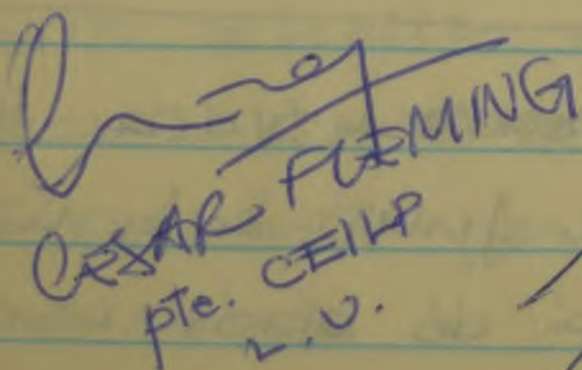 CESAR FLEMING
pte. CEILP
L.U.